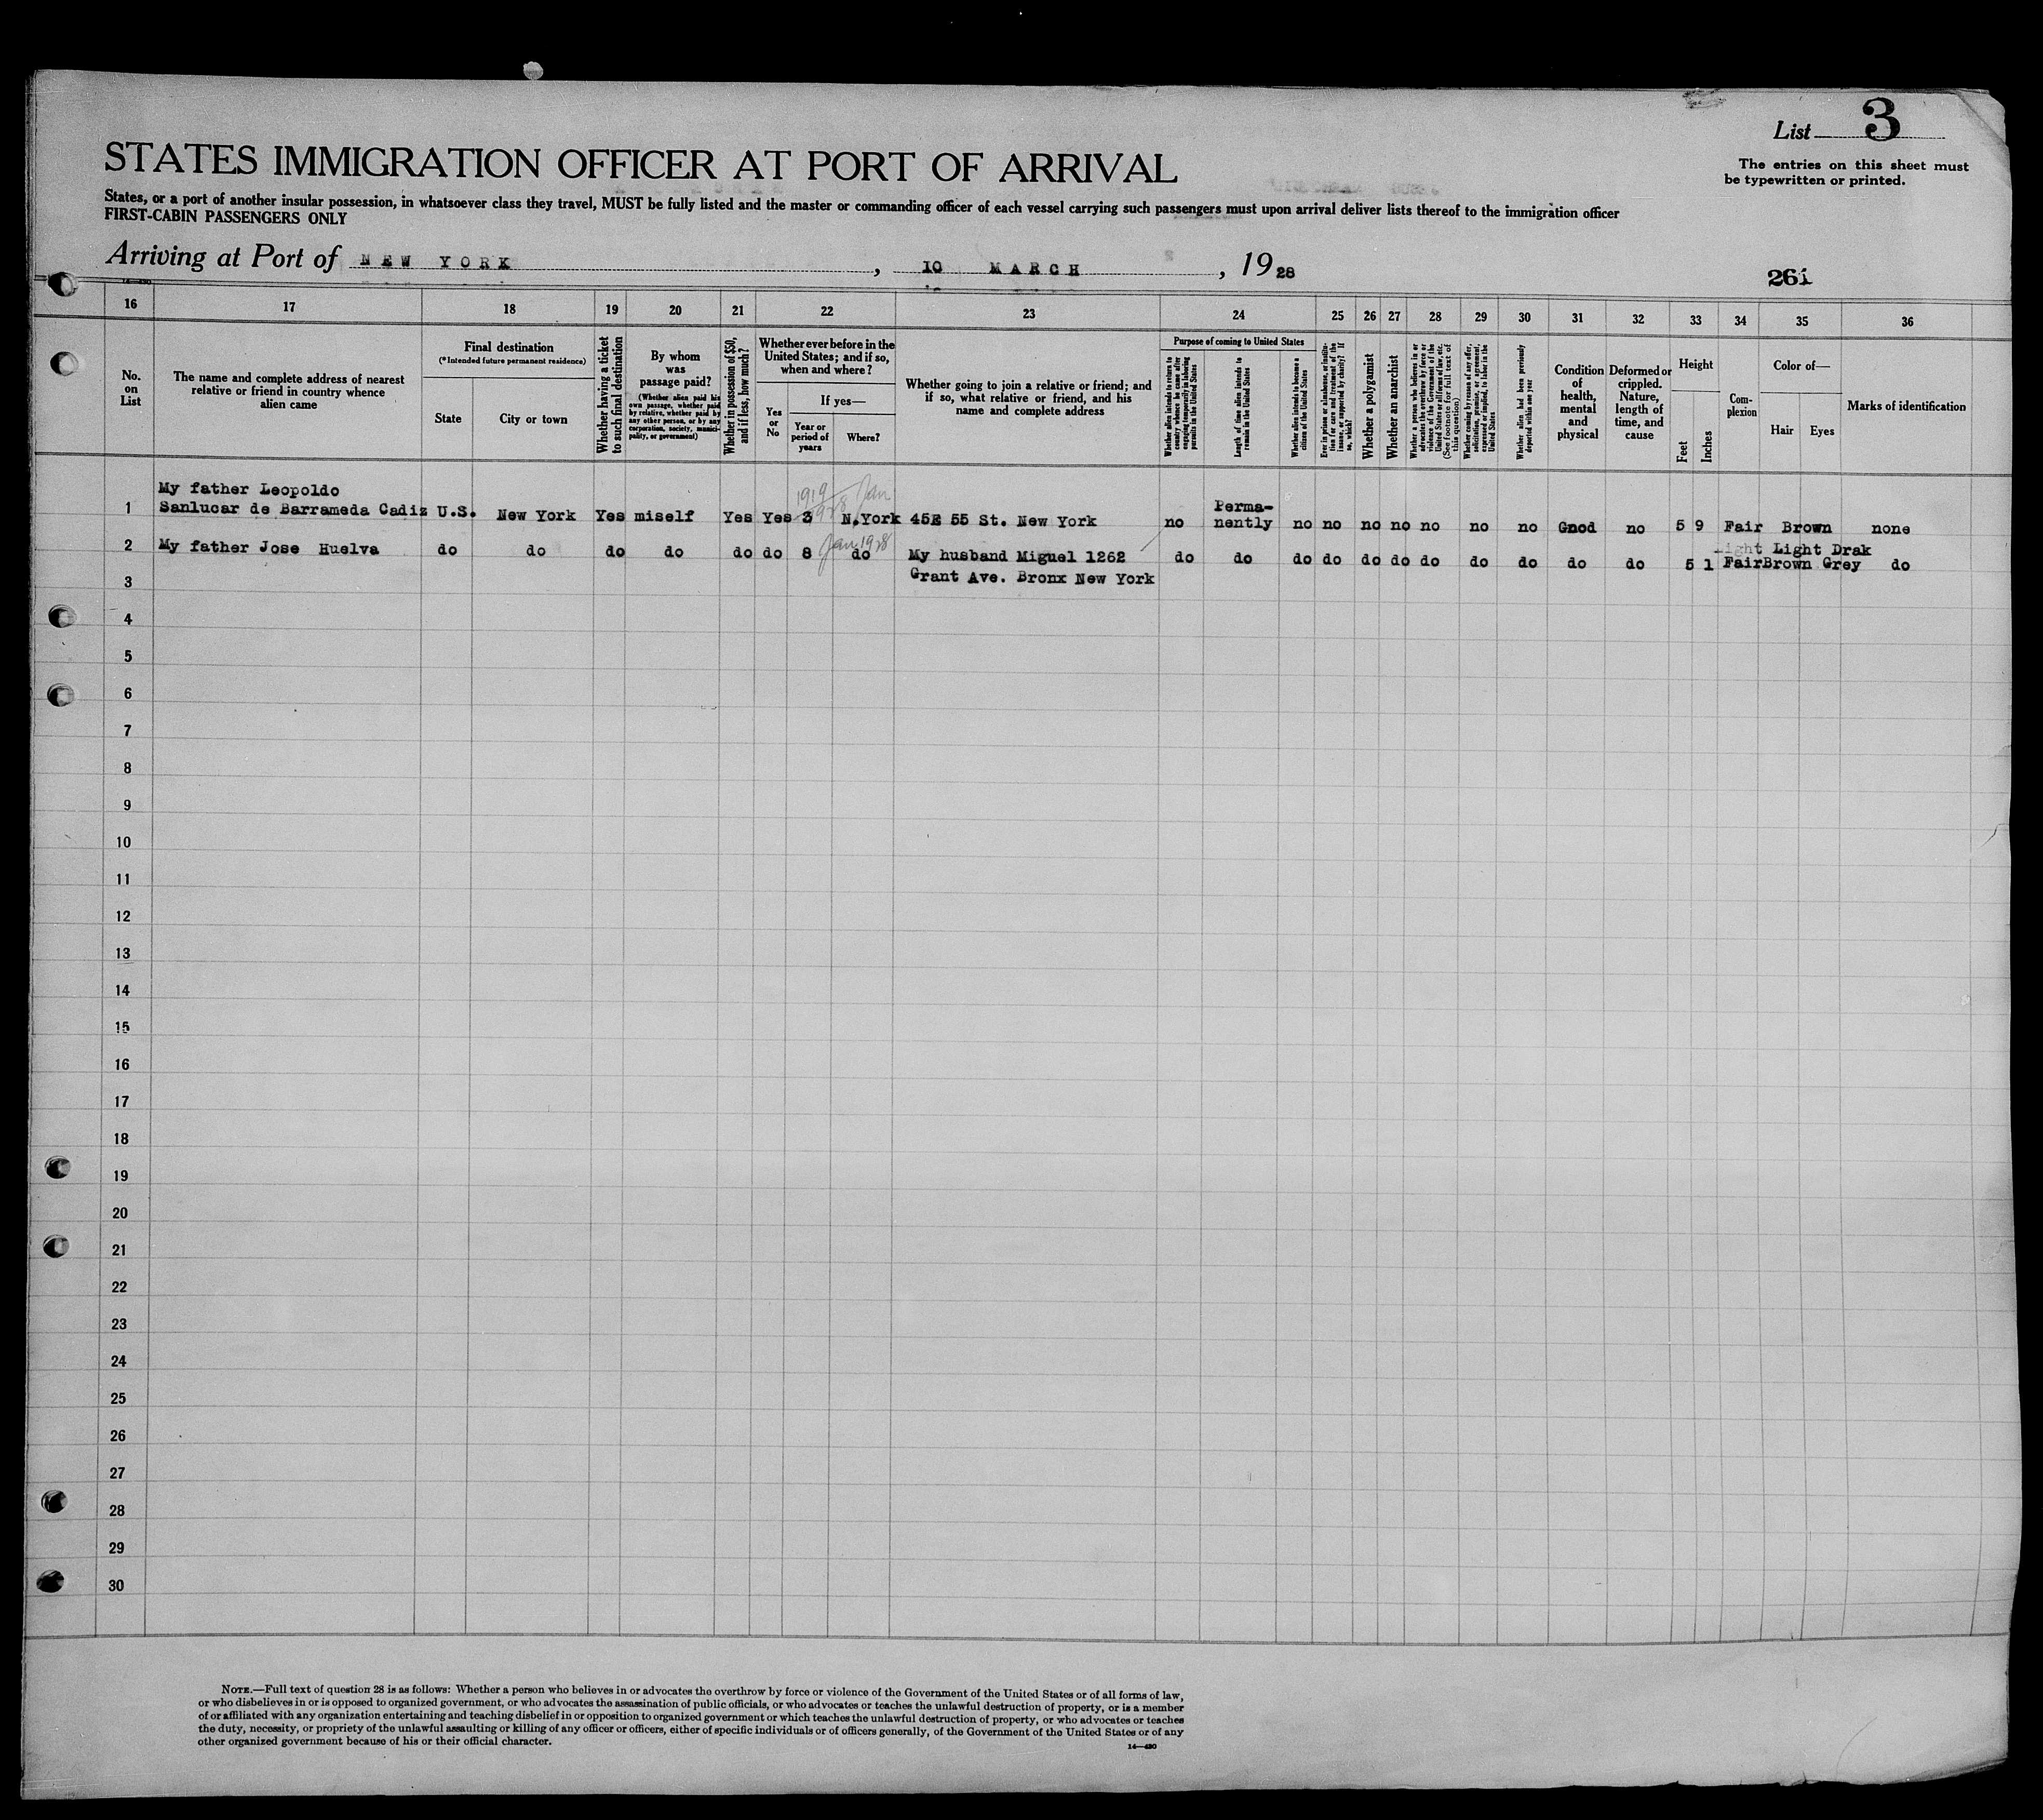 List 3
The entries on this sheet must
be typewritten or printed.
STATES IMMIGRATION OFFICER AT PORT OF ARRIVAL
States, or a port of another insular possession, in whatsoever class they travel, MUST be fully listed and the master or commanding officer of each vessel carrying such passengers must upon arrival deliver lists thereof to the immigration officer
FIRST-CABIN PASSENGERS ONLY
Arriving at Port of NEW YORK, 10 MARCH, 1928
261
14—430
16 17 18 19 20 21 22 23 24 25 26 27 28 29 30 31 32 33 34 35 36
No.
on
List
The name and complete address of nearest
relative or friend in country whence
alien came
Final destination
(*Intended future permanent residence)
State
City or town
Whether having a ticket
to such final destination
By whom
was
passage paid?
(Whether alien paid his
own passage, whether paid
by relative, whether paid by
any other person, or by any
corporation, society, munici-
pality, or government)
Whether in possession of $50,
and if less, how much?
Whether ever before in the
United States; and if so,
when and where?
Yes
or
No
If yes—
Year or
period of
years
Where?
Whether going to join a relative or friend; and
if so, what relative or friend, and his
name and complete address
Purpose of coming to United States
Whether alien intends to return to
country whence he came after
engaging temporarily in laboring
pursuits in the United States
Length of time alien intends to
remain in the United States
Whether alien intends to become a
citizen of the United States
Ever in prison or almshouse, or institu-
tion for care and treatment of the
insane, or supported by charity? If
so, which?
Whether a polygamist
Whether an anarchist
Whether a person who believes in or
advocates the overthrow by force or
violence of the Government of the
United States or all forms of law, etc.
(See footnote for full text of
this question)
Whether coming by reason of any offer,
solicitation, promise, or agreement,
expressed or implied, to labor in the
United States
Whether alien had been previously
deported within one year
Condition
of
health,
mental
and
physical
Deformed or
crippled.
Nature,
length of
time, and
cause
Height
Feet
Inches
Com-
plexion
Color of—
Hair
Eyes
Marks of identification
My father Leopoldo
1 Sanlucar de Barrameda Cadiz U.S. New York Yes miself Yes Yes 3 N.York 45E 55 St. New York no Perma-
nently no no no no no no no Good no 5 9 Fair Brown none
1919
1928 Jan
2 My father Jose Huelva do do do do do do 8 do My husband Miguel 1262 do do do do do do do do do do do 5 1 Fair Brown Grey do
Jan 1928
Light Light Drak
3 Grant Ave. Bronx New York
4
5
6
7
8
9
10
11
12
13
14
15
16
17
18
19
20
21
22
23
24
25
26
27
28
29
30
NOTE.—Full text of question 28 is as follows: Whether a person who believes in or advocates the overthrow by force or violence of the Government of the United States or of all forms of law,
or who disbelieves in or is opposed to organized government, or who advocates the assassination of public officials, or who advocates or teaches the unlawful destruction of property, or is a member
of or affiliated with any organization entertaining and teaching disbelief in or opposition to organized government or which teaches the unlawful destruction of property, or who advocates or teaches
the duty, necessity, or propriety of the unlawful assaulting or killing of any officer or officers, either of specific individuals or of officers generally, of the Government of the United States or of any
other organized government because of his or their official character.
14—430